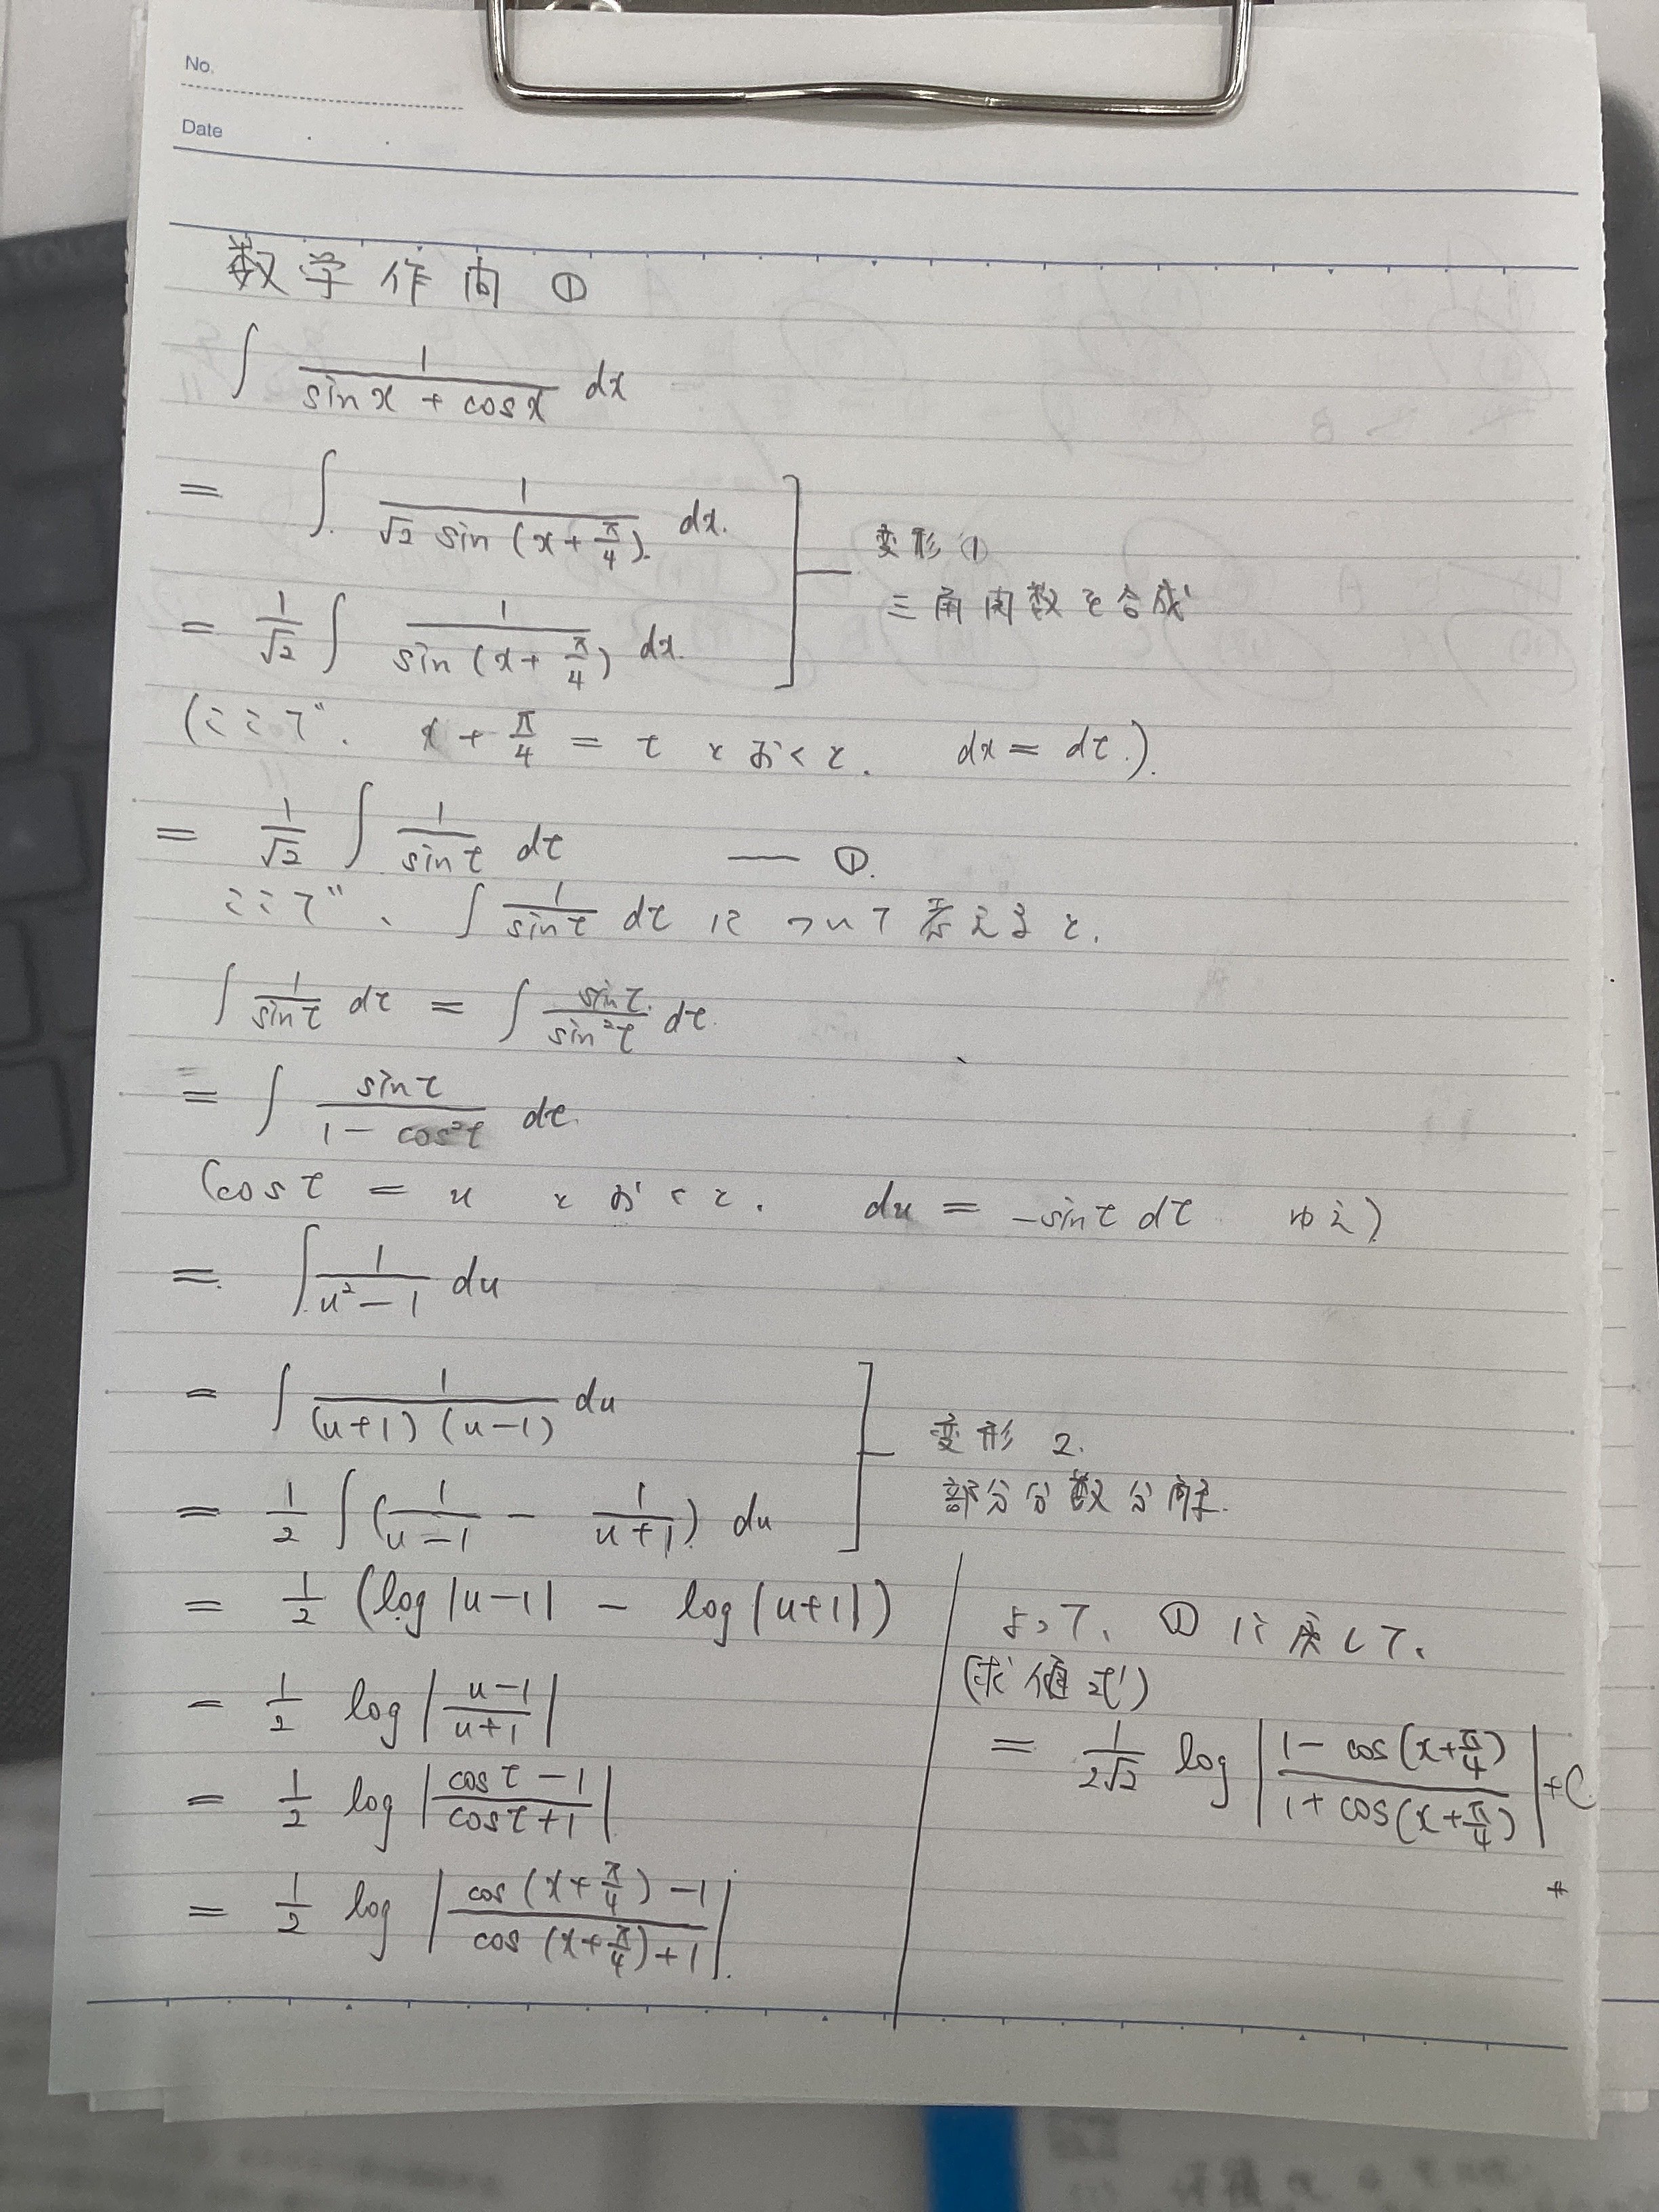 No.
Date
数学作問 ①
∫ 1/(sin x + cos x) dx
= ∫ 1/(√2 sin (x + π/4)) dx.
変形①
三角関数を合成
= 1/√2 ∫ 1/(sin (x + π/4)) dx.
(ここで、 x + π/4 = t とおくと. dx = dt.)
= 1/√2 ∫ 1/(sin t) dt ― ①.
ここで、∫ 1/(sin t) dt について考えると.
∫ 1/(sin t) dt = ∫ sin t/(sin²t) dt.
= ∫ sin t/(1 - cos²t) dt.
(cos t = u とおくと. du = -sin t dt ゆえ)
= ∫ 1/(u² - 1) du
= ∫ 1/((u+1)(u-1)) du
変形 2.
部分分数分解.
= 1/2 ∫ (1/(u-1) - 1/(u+1)) du
= 1/2 (log|u-1| - log|u+1|)
= 1/2 log |(u-1)/(u+1)|
= 1/2 log |(cos t - 1)/(cos t + 1)|
= 1/2 log |(cos (x + π/4) - 1)/(cos (x + π/4) + 1)|.
よって、①に戻して、
(求値式)
= 1/(2√2) log |(1 - cos(x + π/4))/(1 + cos(x + π/4))| + C